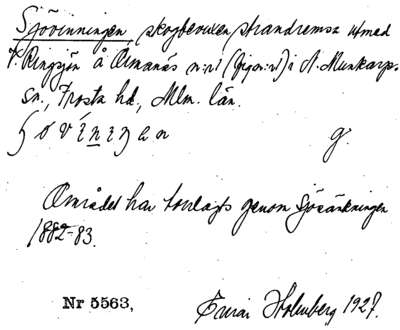 Sjövinningen, skogbevuxen strandremsa utmed
V. Ringsjön å Ormanäs n:r1 i N. Munkarps
sn., Frosta hd., Mlm. län.
g.
Området har torrlagts genom sjösänkningen
1882-83.
Nr 5563, Holmberg 1927.